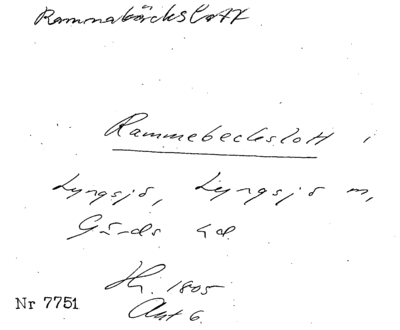 Rammabäckslott
Rammebeckslott i
Lyngsjö, Lyngsjö sn,
Gärds hd
Hj. 1805
Akt 6.
Nr 7751